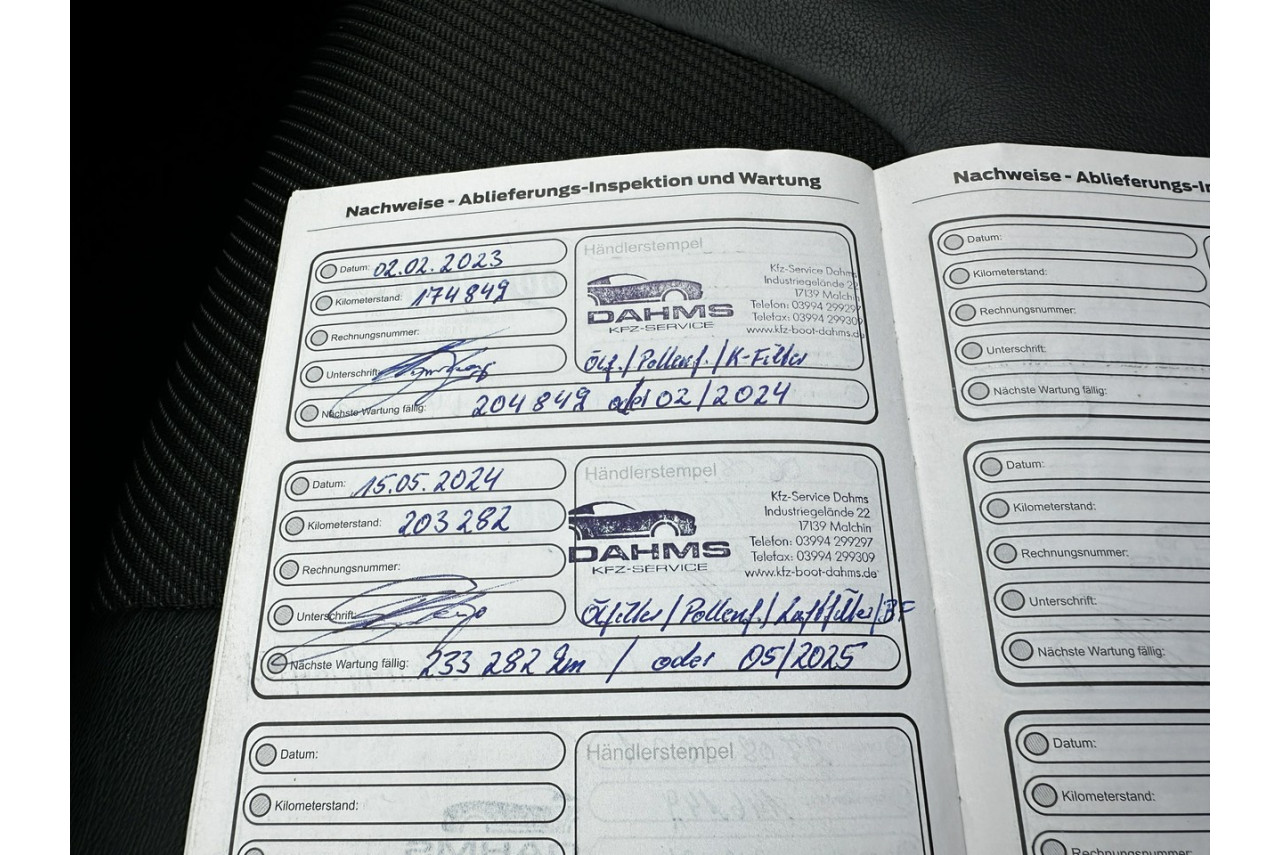 Nachweise - Ablieferungs-Inspektion und Wartung
Datum: 02.02.2023
Kilometerstand: 174849
Rechnungsnummer:
Unterschrift:
Nächste Wartung fällig: 204849 oder 02/2024
Händlerstempel
Kfz-Service Dahms
Industriegelände 22
17139 Malchin
Telefon: 03994 299297
Telefax: 03994 299309
www.kfz-boot-dahms.de
DAHMS
KFZ-SERVICE
Ölf./Pollenf./K-Filter
Datum: 15.05.2024
Kilometerstand: 203 282
Rechnungsnummer:
Unterschrift:
Nächste Wartung fällig: 233 282 km / oder 05/2025
Händlerstempel
Kfz-Service Dahms
Industriegelände 22
17139 Malchin
Telefon: 03994 299297
Telefax: 03994 299309
www.kfz-boot-dahms.de
DAHMS
KFZ-SERVICE
Ölfilter/Pollenf./Luftfilter/BF
Datum:
Kilometerstand:
Händlerstempel
Nachweise - Ablieferungs-
Datum:
Kilometerstand:
Rechnungsnummer:
Unterschrift:
Nächste Wartung fällig:
Datum:
Kilometerstand:
Rechnungsnummer:
Unterschrift:
Nächste Wartung fällig:
Datum:
Kilometerstand:
Rechnungsnummer: